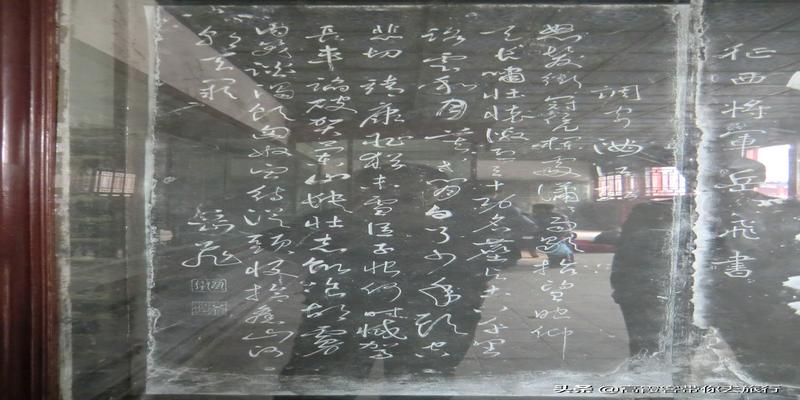 征西将軍岳飛書
調寄滿江红
怒髮衝冠凭栏處瀟瀟雨歇抬望眼仰
天長嘯壮懷激烈三十功名塵与土八千里
路雲和月莫等闲白了少年頭空
悲切靖康恥猶未雪臣子恨何時滅駕
長車踏破賀蘭山缺壮志飢飡胡虜
肉笑談渴飲匈奴血待從頭收拾舊山河
朝天闕
岳飛
头条 @高霞客带你去旅行